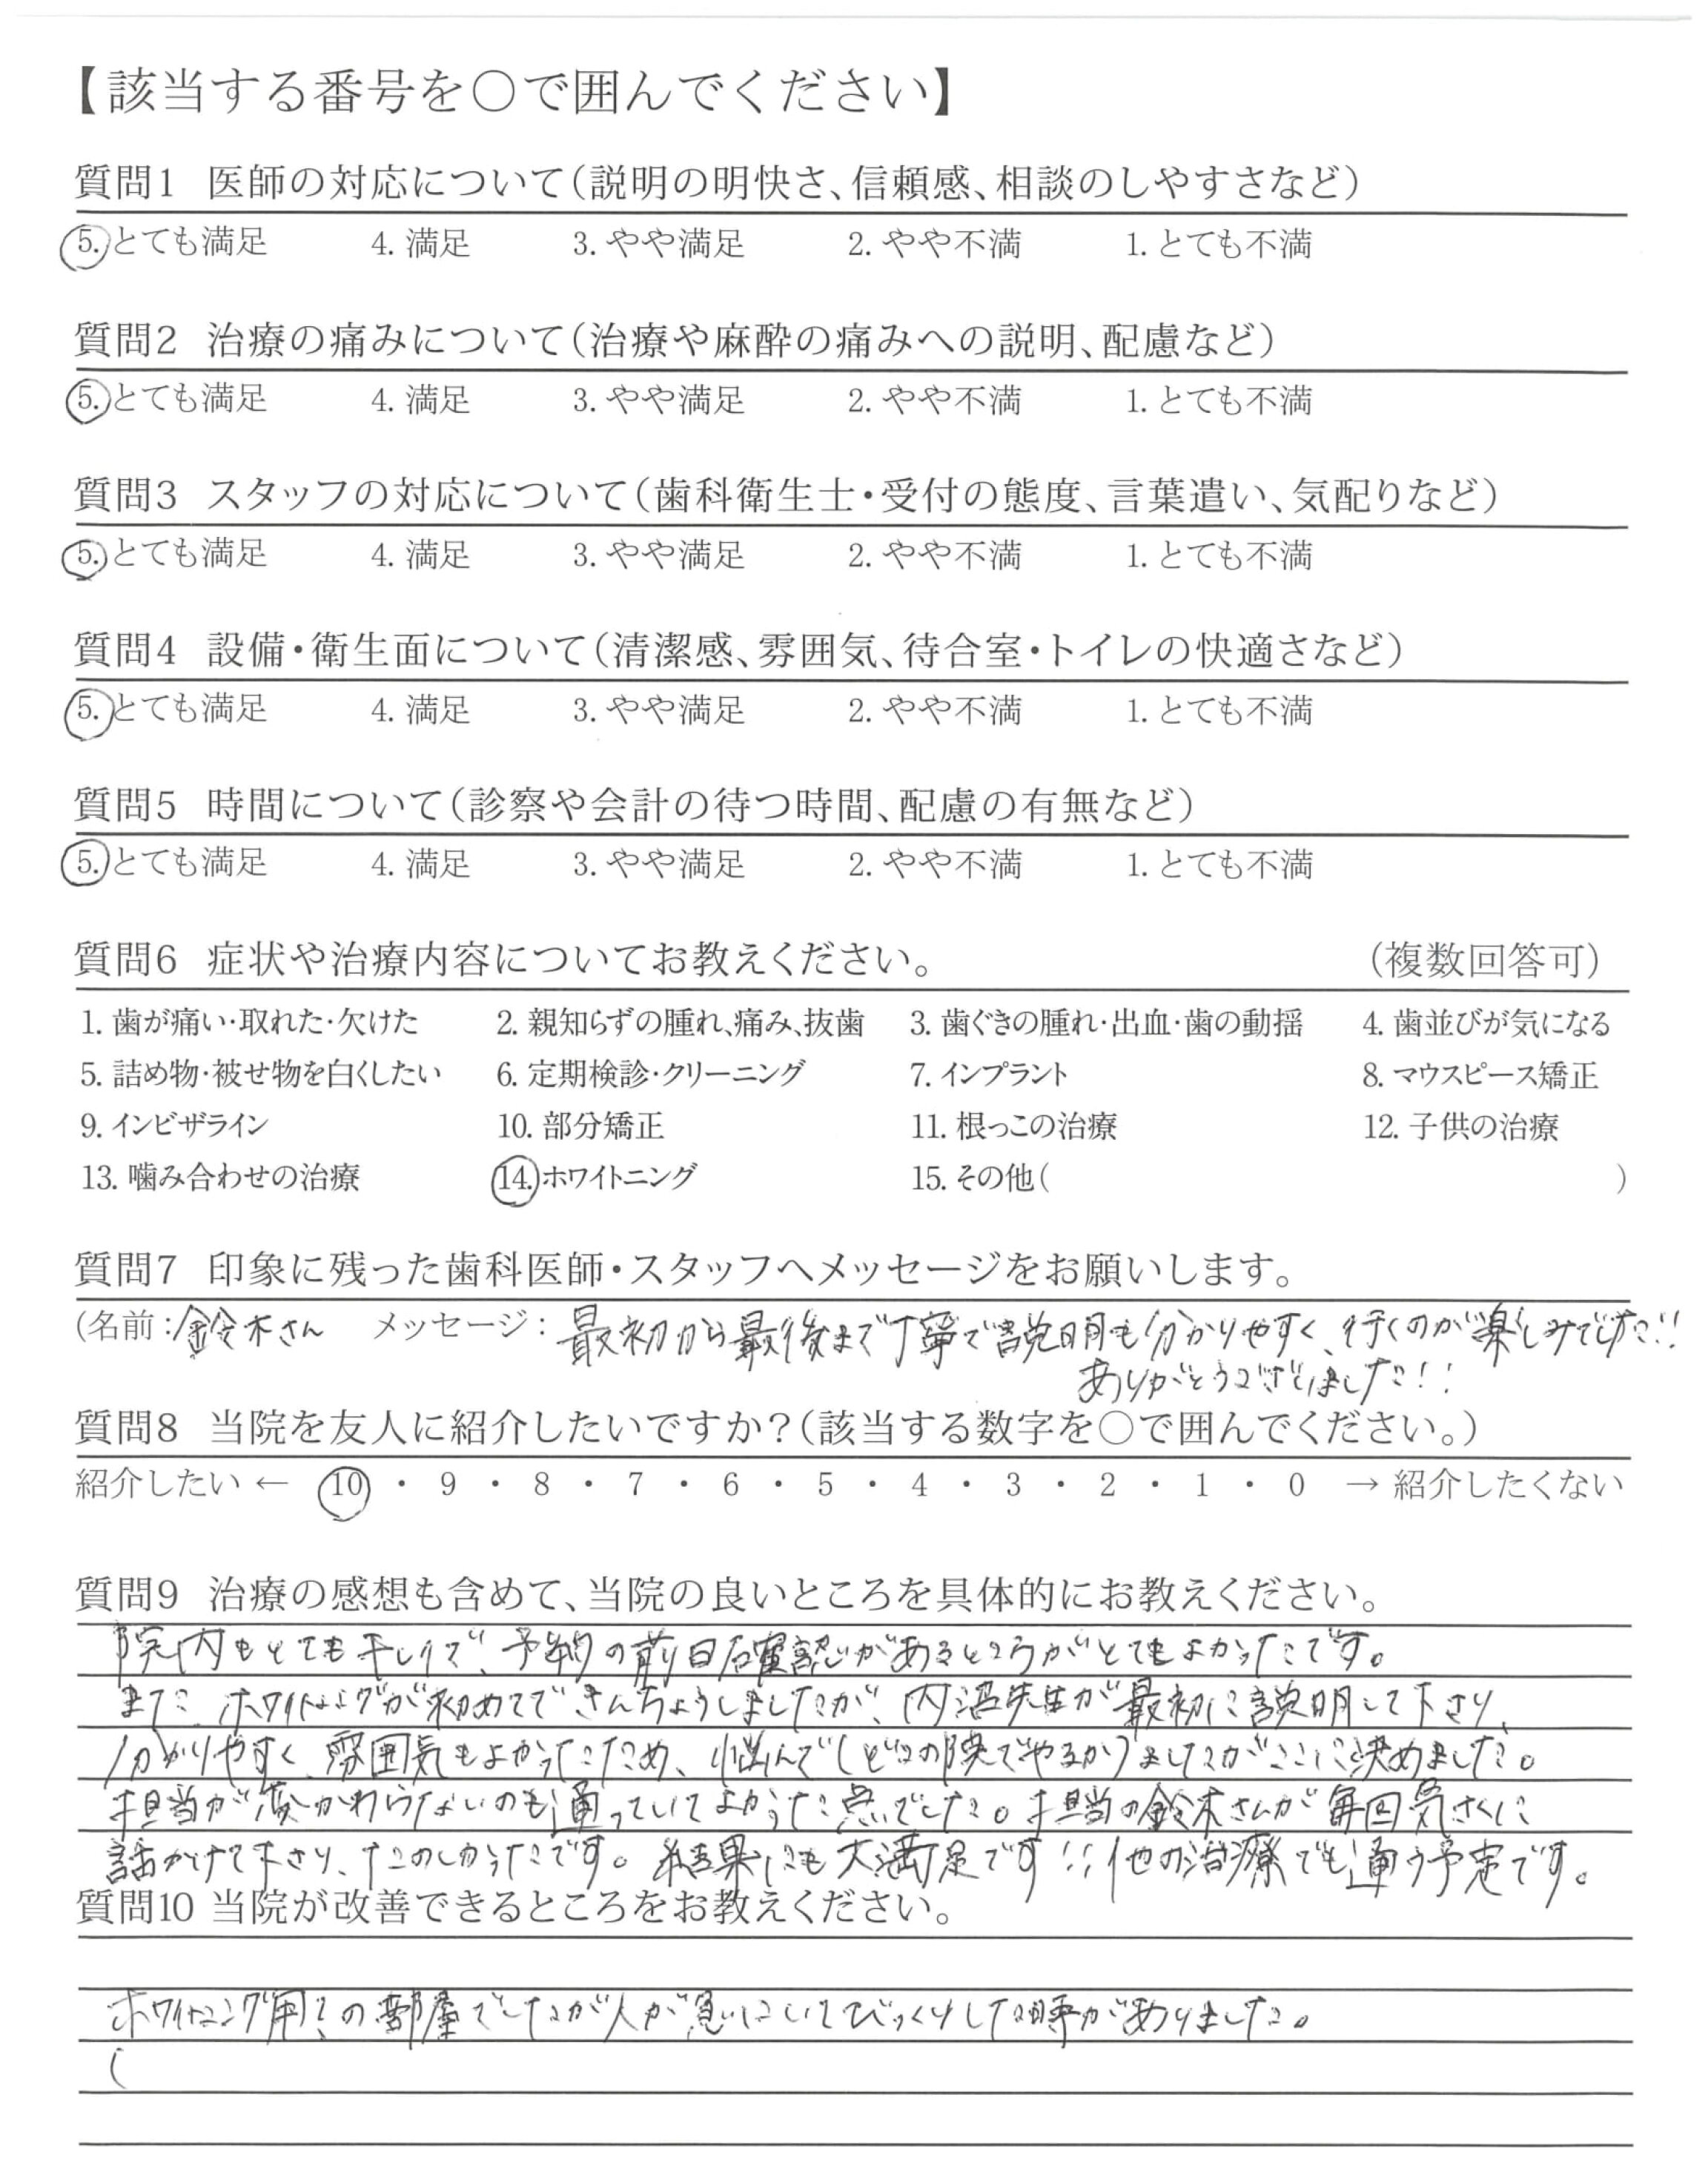 【該当する番号を○で囲んでください】
質問1 医師の対応について(説明の明快さ、信頼感、相談のしやすさなど)
5. とても満足 4. 満足 3. やや満足 2. やや不満 1. とても不満
質問2 治療の痛みについて(治療や麻酔の痛みへの説明、配慮など)
5. とても満足 4. 満足 3. やや満足 2. やや不満 1. とても不満
質問3 スタッフの対応について(歯科衛生士・受付の態度、言葉遣い、気配りなど)
5. とても満足 4. 満足 3. やや満足 2. やや不満 1. とても不満
質問4 設備・衛生面について(清潔感、雰囲気、待合室・トイレの快適さなど)
5. とても満足 4. 満足 3. やや満足 2. やや不満 1. とても不満
質問5 時間について(診察や会計の待つ時間、配慮の有無など)
5. とても満足 4. 満足 3. やや満足 2. やや不満 1. とても不満
質問6 症状や治療内容についてお教えください。 (複数回答可)
1. 歯が痛い・取れた・欠けた 2. 親知らずの腫れ、痛み、抜歯 3. 歯ぐきの腫れ・出血・歯の動揺 4. 歯並びが気になる
5. 詰め物・被せ物を白くしたい 6. 定期検診・クリーニング 7. インプラント 8. マウスピース矯正
9. インビザライン 10. 部分矯正 11. 根っこの治療 12. 子供の治療
13. 噛み合わせの治療 14. ホワイトニング 15. その他( )
質問7 印象に残った歯科医師・スタッフへメッセージをお願いします。
(名前:鈴木さん メッセージ:最初から最後まで丁寧で説明も分かりやすく、行くのが楽しみでした!!
ありがとうございました!!
質問8 当院を友人に紹介したいですか?(該当する数字を○で囲んでください。)
紹介したい ← 10 ・ 9 ・ 8 ・ 7 ・ 6 ・ 5 ・ 4 ・ 3 ・ 2 ・ 1 ・ 0 → 紹介したくない
質問9 治療の感想も含めて、当院の良いところを具体的にお教えください。
院内もとてもキレイで、予約の前日確認があるところがとてもよかったです。
また、ホワイトニングが初めてできんちょうしましたが、内沼先生が最初に説明して下さり、
分かりやすく、雰囲気もよかったため、悩んで(どこの院でやるか)ましたがここに決めました。
担当がかわらないのも通っていてよかった点でした。担当の鈴木さんが毎回気さくに
話かけて下さり、たのしかったです。結果にも大満足です!!他の治療でも通う予定です。
質問10 当院が改善できるところをお教えください。
ホワイトニング用?の部屋でしたが人が急にいてびっくりした時がありました。
(